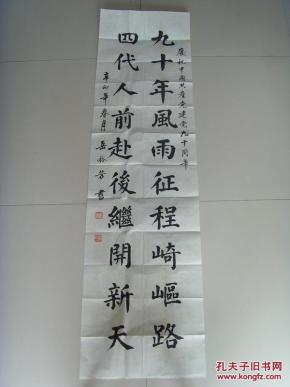 庆祝中国共产党建党九十周年
九十年風雨征程崎嶇路
四代人前赴後繼開新天
辛卯年春月岳 芳書
孔夫子旧书网